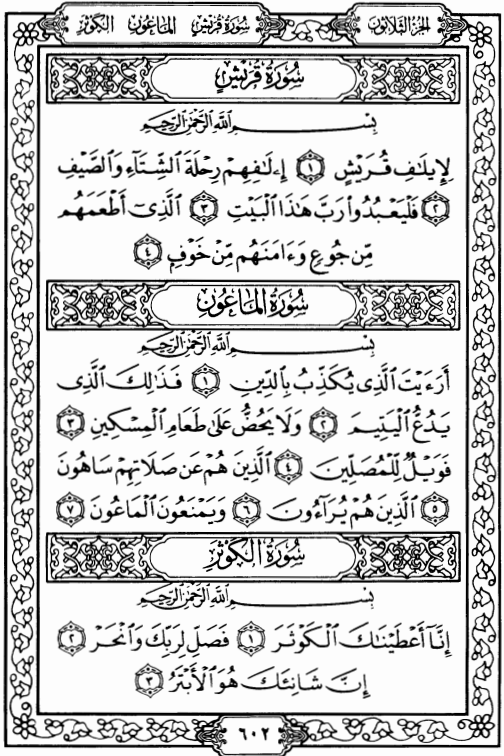 الجزء الثلاثون
سورة قريش الماعون الكوثر
سُورَةُ قُرَيْشٍ
بِسْمِ اللَّهِ الرَّحْمَٰنِ الرَّحِيمِ
لِإِيلَٰفِ قُرَيْشٍ ١ إِۦلَٰفِهِمْ رِحْلَةَ ٱلشِّتَآءِ وَٱلصَّيْفِ
٢ فَلْيَعْبُدُوا۟ رَبَّ هَٰذَا ٱلْبَيْتِ ٣ ٱلَّذِىٓ أَطْعَمَهُم
مِّن جُوعٍ وَءَامَنَهُم مِّنْ خَوْفٍۭ ٤
سُورَةُ المَاعُونِ
بِسْمِ اللَّهِ الرَّحْمَٰنِ الرَّحِيمِ
أَرَءَيْتَ ٱلَّذِى يُكَذِّبُ بِٱلدِّينِ ١ فَذَٰلِكَ ٱلَّذِى
يَدُعُّ ٱلْيَتِيمَ ٢ وَلَا يَحُضُّ عَلَىٰ طَعَامِ ٱلْمِسْكِينِ ٣
فَوَيْلٌ لِّلْمُصَلِّينَ ٤ ٱلَّذِينَ هُمْ عَن صَلَاتِهِمْ سَاهُونَ
٥ ٱلَّذِينَ هُمْ يُرَآءُونَ ٦ وَيَمْنَعُونَ ٱلْمَاعُونَ ٧
سُورَةُ الكَوْثَرِ
بِسْمِ اللَّهِ الرَّحْمَٰنِ الرَّحِيمِ
إِنَّآ أَعْطَيْنَٰكَ ٱلْكَوْثَرَ ١ فَصَلِّ لِرَبِّكَ وَٱنْحَرْ ٢
إِنَّ شَانِئَكَ هُوَ ٱلْأَبْتَرُ ٣
٦٠٢